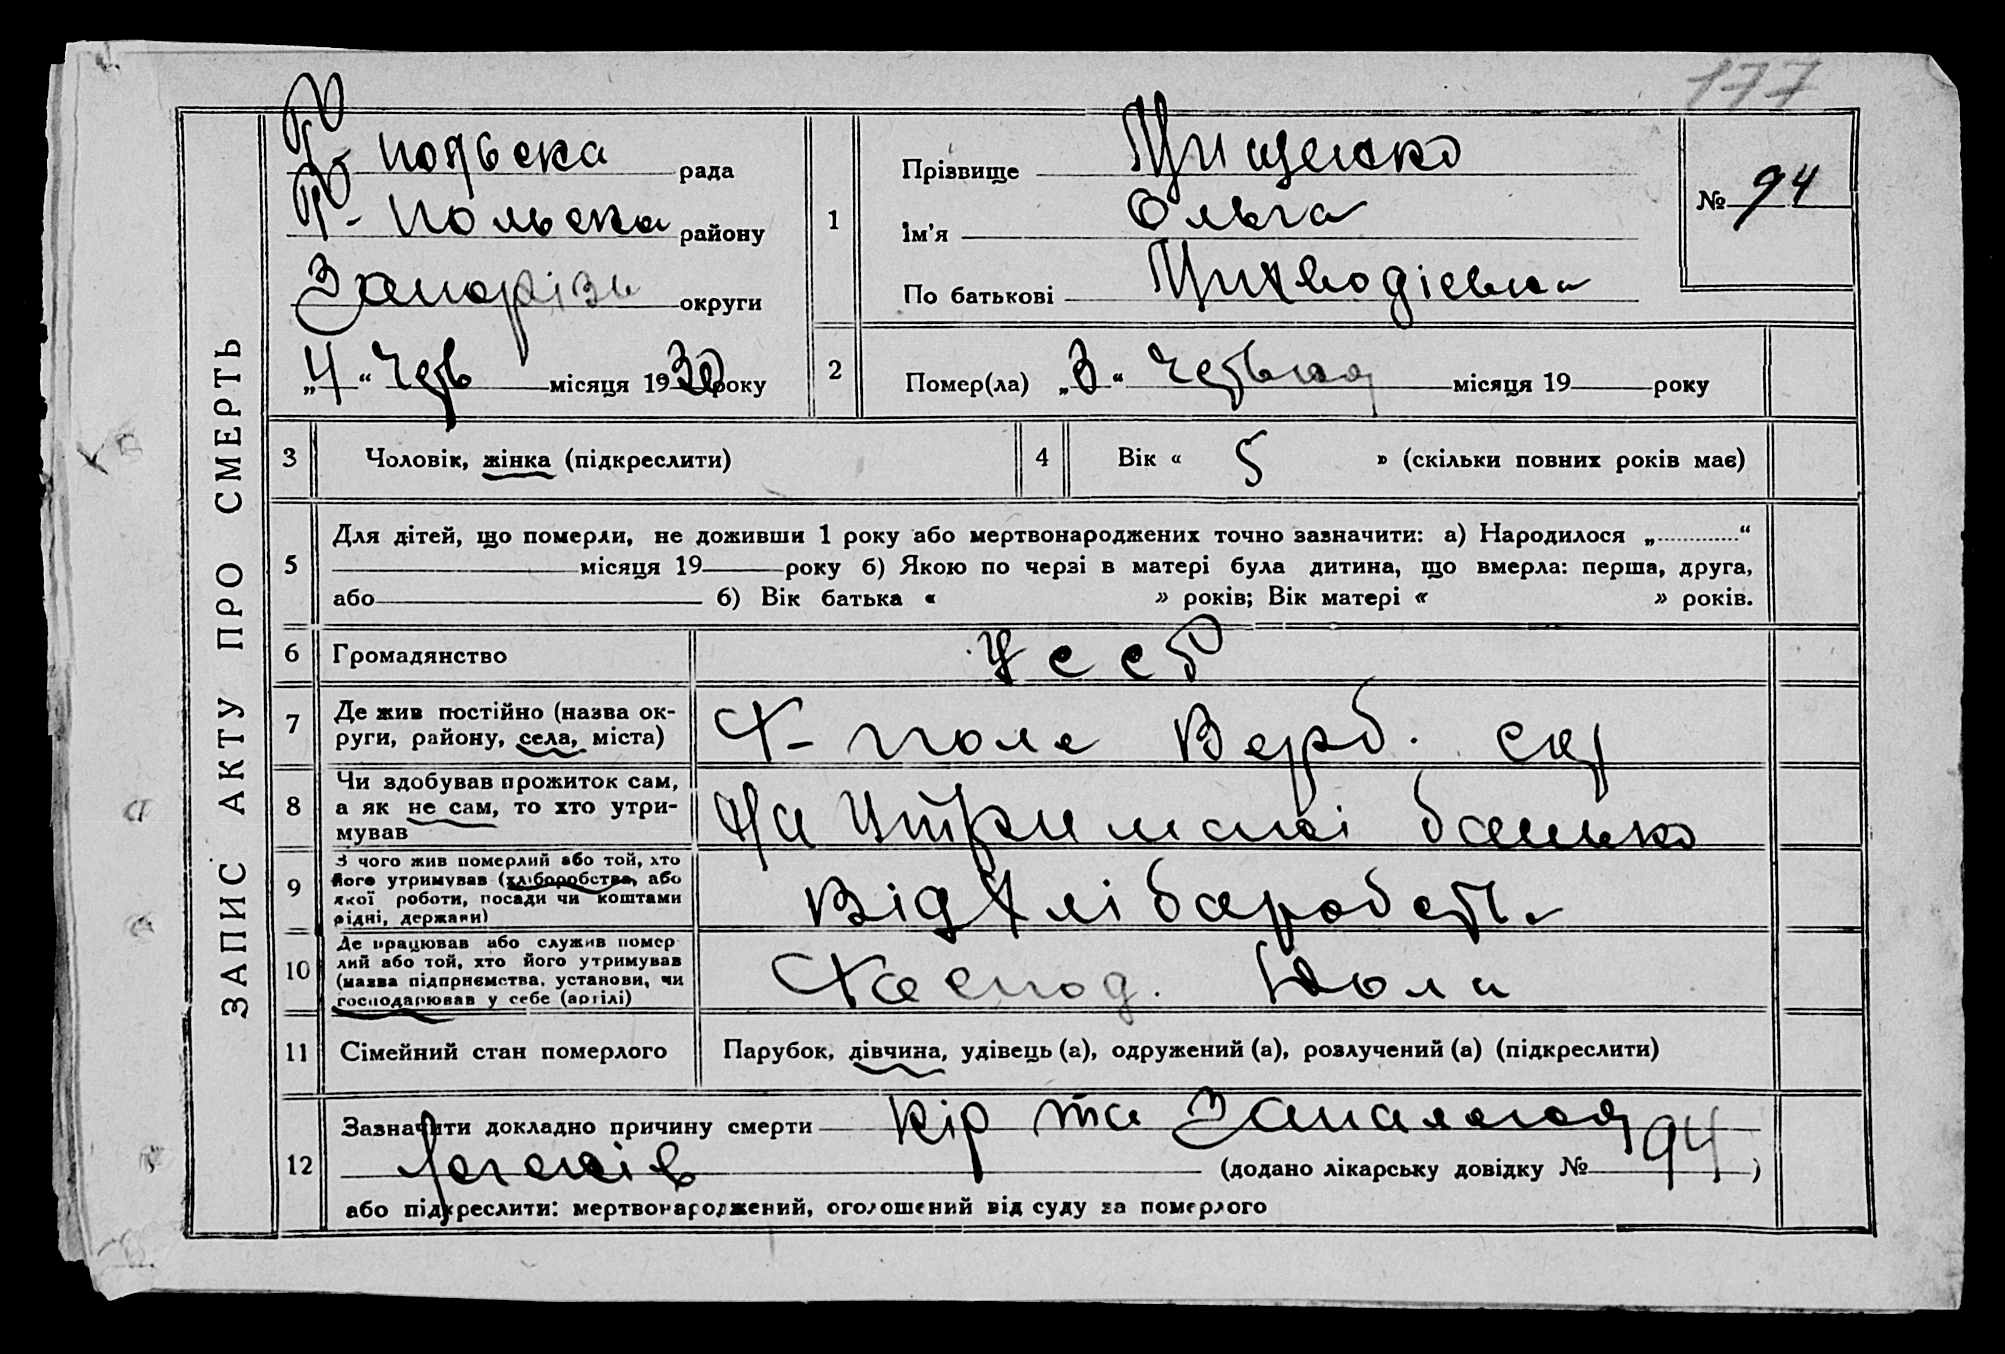 177
ЗАПИС АКТУ ПРО СМЕРТЬ
польска рада
Р- Польска району
Запорізь округи
„4“ Черв місяця 1930 року
1
Прізвище Грищенко
Ім'я Ольга
По батькові
№ 94
2
Помер(ла) „3“ Червня місяця 19 року
3
Чоловік, жінка (підкреслити)
4
Вік « 5 » (скільки повних років має)
5
Для дітей, що померли, не доживши 1 року або мертвонароджених точно зазначити: а) Народилося „ “
місяця 19 року б) Якою по черзі в матері була дитина, що вмерла: перша, друга,
або б) Вік батька « » років; Вік матері « » років.
6
Громадянство
УССР
7
Де жив постійно (назва ок-
руги, району, села, міста)
Х- поле Верб.
8
Чи здобував прожиток сам,
а як не сам, то хто утри-
мував
На утриманні батько
9
З чого жив померлий або той, хто
його утримував (хліборобство, або
якої роботи, посади чи коштами
рідні, держави)
Від хліборобств
10
Де працював або служив помер
лий або той, хто його утримував
(назва підприємства, установи, чи
господарював у себе (артілі)
11
Сімейний стан померлого
Парубок, дівчина, удівець (а), одружений (а), розлучений (а) (підкреслити)
12
Зазначити докладно причину смерти кір та Запалення
легенів (додано лікарську довідку № 94 )
або підкреслити: мертвонароджений, оголошений від суду за померлого